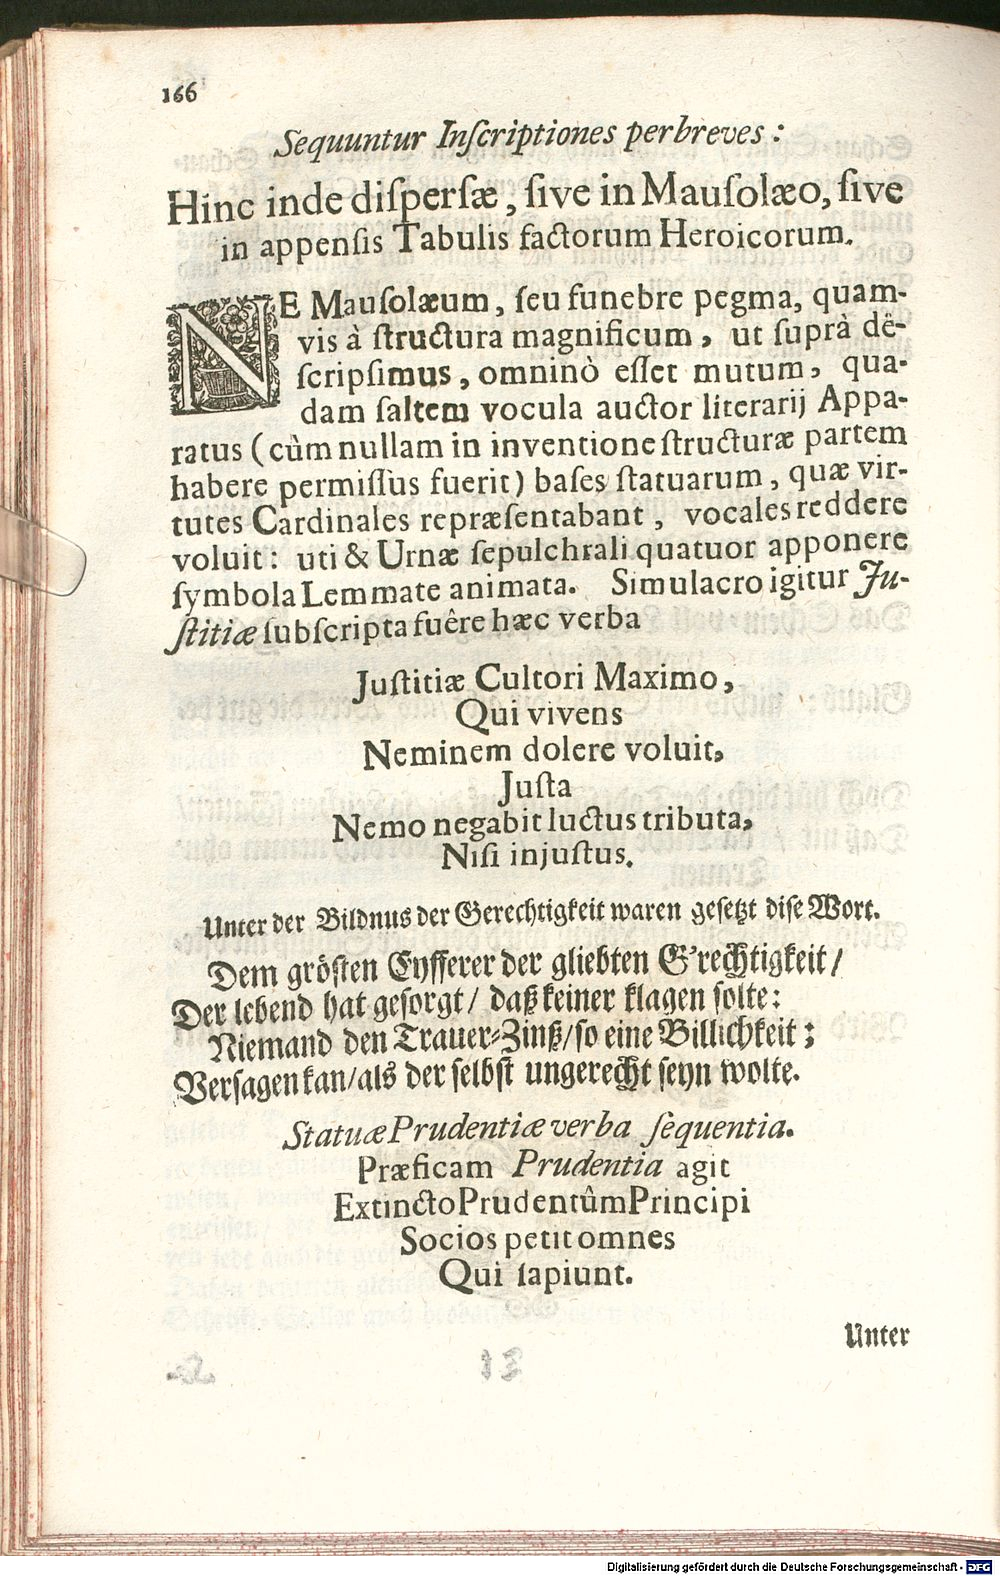 166
Sequuntur Inſcriptiones perbreves:
Hinc inde diſperſæ, ſive in Mauſolæo, ſive
in appenſis Tabulis factorum Heroicorum.
NE Mauſolæum, ſeu funebre pegma, quam-
vis à ſtructura magnificum, ut ſuprà dê-
ſcripſimus, omninò eſſet mutum, qua-
dam ſaltem vocula auctor literarij Appa-
ratus (cùm nullam in inventione ſtructuræ partem
habere permiſſus fuerit) baſes ſtatuarum, quæ vir-
tutes Cardinales repræſentabant, vocales reddere
voluit: uti & Urnæ ſepulchrali quatuor apponere
ſymbola Lemmate animata. Simulacro igitur Ju-
ſtitiæ ſubſcripta fuêre hæc verba
Juſtitiæ Cultori Maximo,
Qui vivens
Neminem dolere voluit,
Juſta
Nemo negabit luctus tributa,
Niſi injuſtus.
Unter der Bildnus der Gerechtigkeit waren geſetzt diſe Wort.
Dem gröſten Eyfferer der gliebten G'rechtigkeit/
Der lebend hat geſorgt/ daß keiner klagen ſolte:
Niemand den Trauer-Zinß/ ſo eine Billichkeit;
Verſagen kan/ als der ſelbſt ungerecht ſeyn wolte.
Statuæ Prudentiæ verba ſequentia.
Præficam Prudentia agit
Extincto Prudentûm Principi
Socios petit omnes
Qui ſapiunt.
Unter
Digitalisierung gefördert durch die Deutsche Forschungsgemeinschaft - DFG